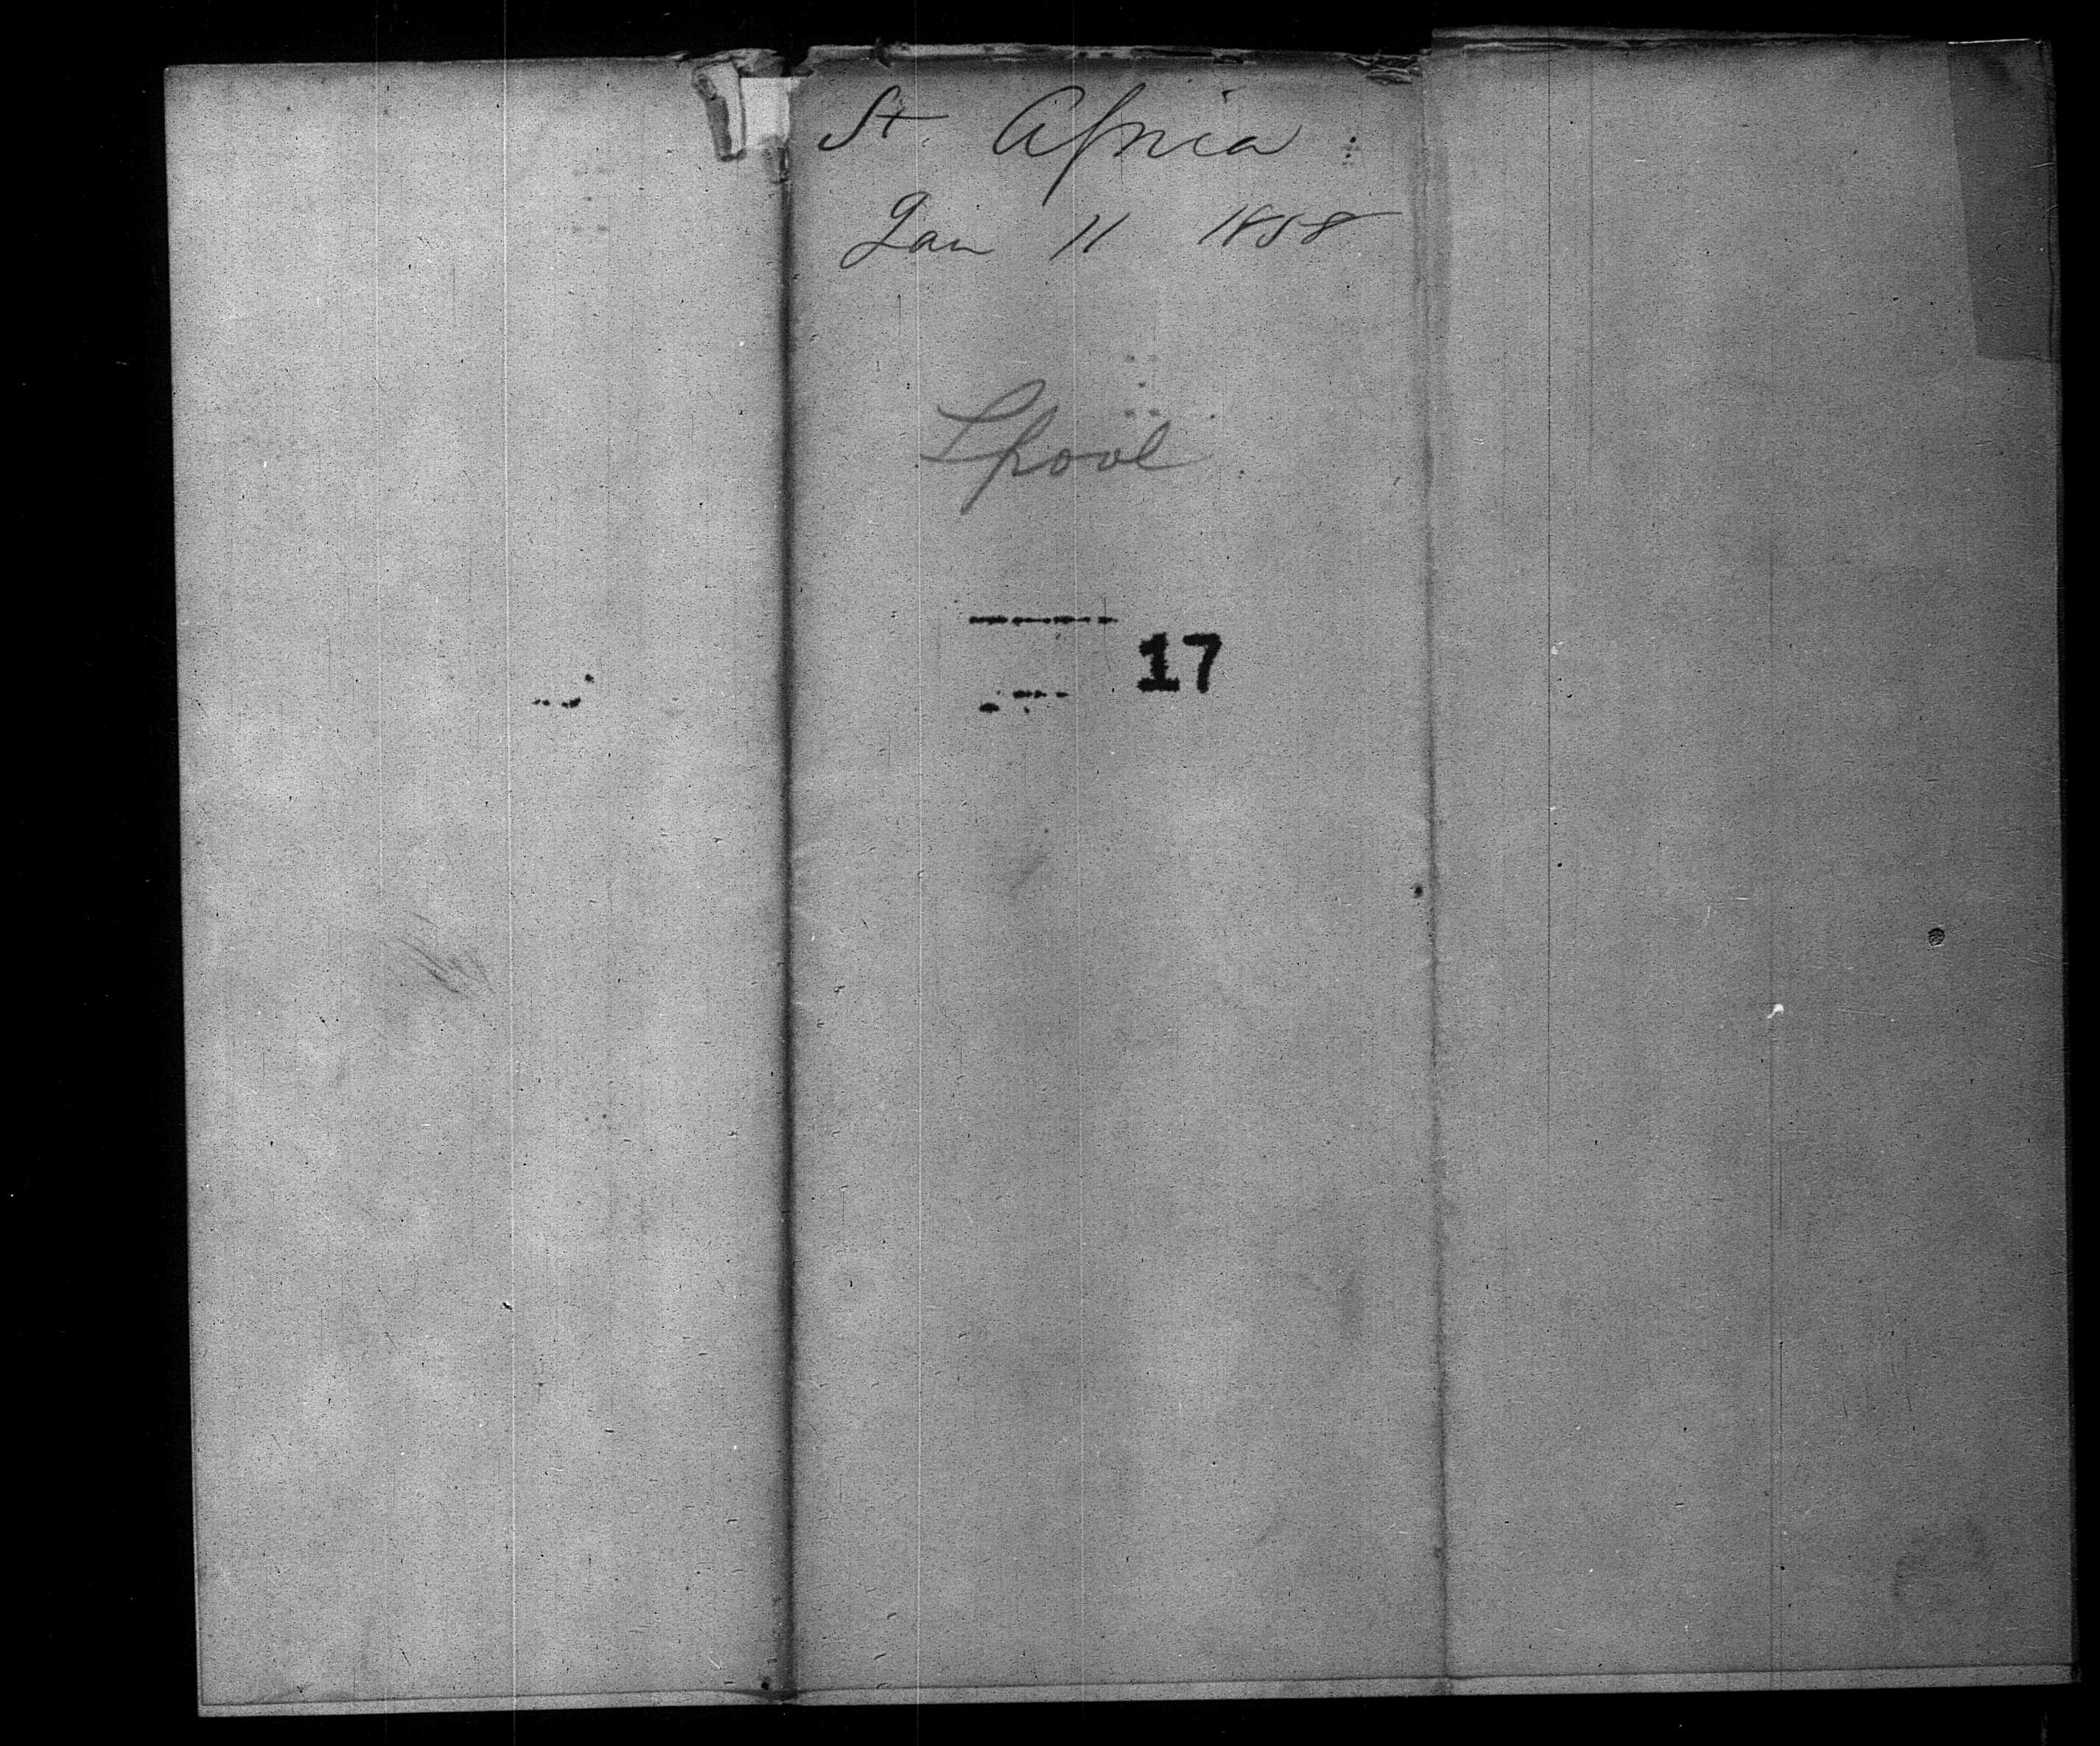 St. Africa
Jan 11 1858
Lpool
17